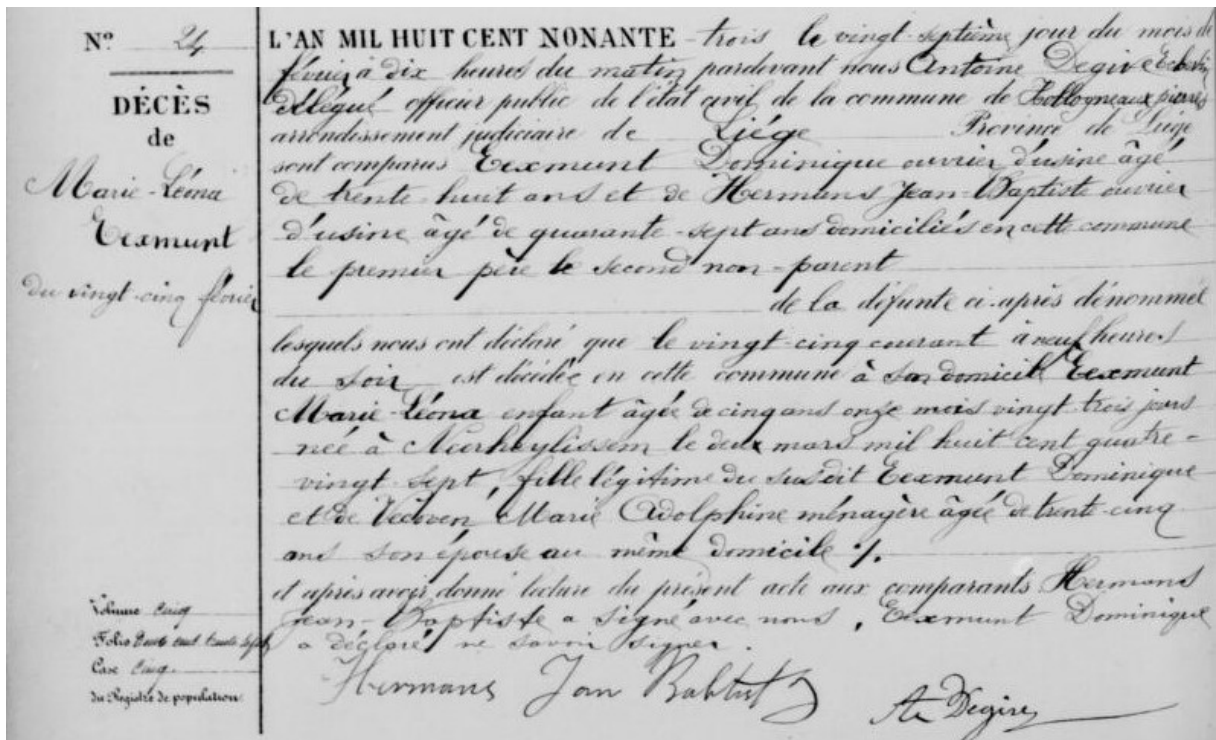 Nº 24
DÉCÈS
de
Marie-Léona
Eexmunt
du vingt-cinq février
Volume Cinq
Folio Deux cent trente sept
Case Cinq
du Registre de population
L'AN MIL HUIT CENT NONANTE - trois le vingt-septième jour du mois de
février à dix heures du matin pardevant nous Antoine Degive Echevin
délégué officier public de l'état civil de la commune de Hollogneauxpierres
arrondissement judiciaire de Liége Province de Liége
sont comparus Eexmunt Dominique ouvrier d'usine âgé
de trente huit ans et de Hermans Jean-Baptiste ouvrier
d'usine âgé de quarante-sept ans domiciliés en cette commune
le premier père le second non-parent
de la défunte ci-après dénommée
lesquels nous ont déclaré que le vingt-cinq courant à neuf heures
du soir est décédée en cette commune à son domicile Eexmunt
Marie-Léona enfant âgée de cinq ans onze mois vingt-trois jours
née à Neerheylissem le deux mars mil huit cent quatre-
vingt-sept, fille légitime du susdit Eexmunt Dominique
et de Vecoven Marie Adolphine ménagère âgée de trente-cinq
ans son épouse au même domicile ./.
et après avoir donné lecture du présent acte aux comparants Hermans
Jean-Baptiste a signé avec nous, Eexmunt Dominique
a déclaré ne savoir signer.
Hermans Jan Babtist
Ate Degive